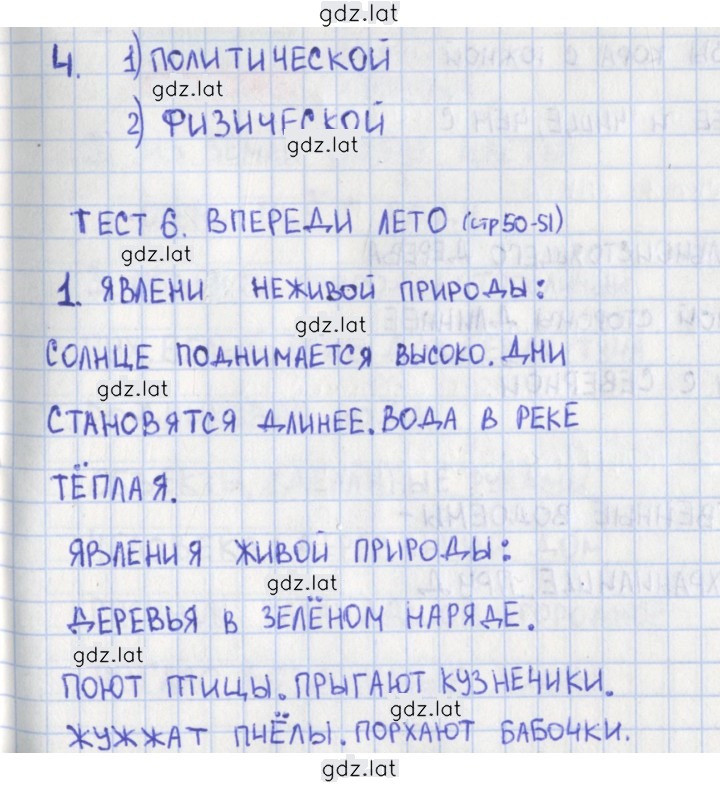 gdz.lat
4. 1) ПОЛИТИЧЕСКОЙ
gdz.lat
2) ФИЗИЧЕСКОЙ
gdz.lat
ТЕСТ 6. ВПЕРЕДИ ЛЕТО (стр 50-51)
gdz.lat
1. ЯВЛЕНИ НЕЖИВОЙ ПРИРОДЫ:
gdz.lat
СОЛНЦЕ ПОДНИМАЕТСЯ ВЫСОКО. ДНИ
gdz.lat
СТАНОВЯТСЯ ДЛИНЕЕ. ВОДА В РЕКЕ
ТЁПЛАЯ.
ЯВЛЕНИЯ ЖИВОЙ ПРИРОДЫ:
gdz.lat
ДЕРЕВЬЯ В ЗЕЛЁНОМ НАРЯДЕ.
gdz.lat
ПОЮТ ПТИЦЫ. ПРЫГАЮТ КУЗНЕЧИКИ.
gdz.lat
ЖУЖЖАТ ПЧЁЛЫ. ПОРХАЮТ БАБОЧКИ.
gdz.lat